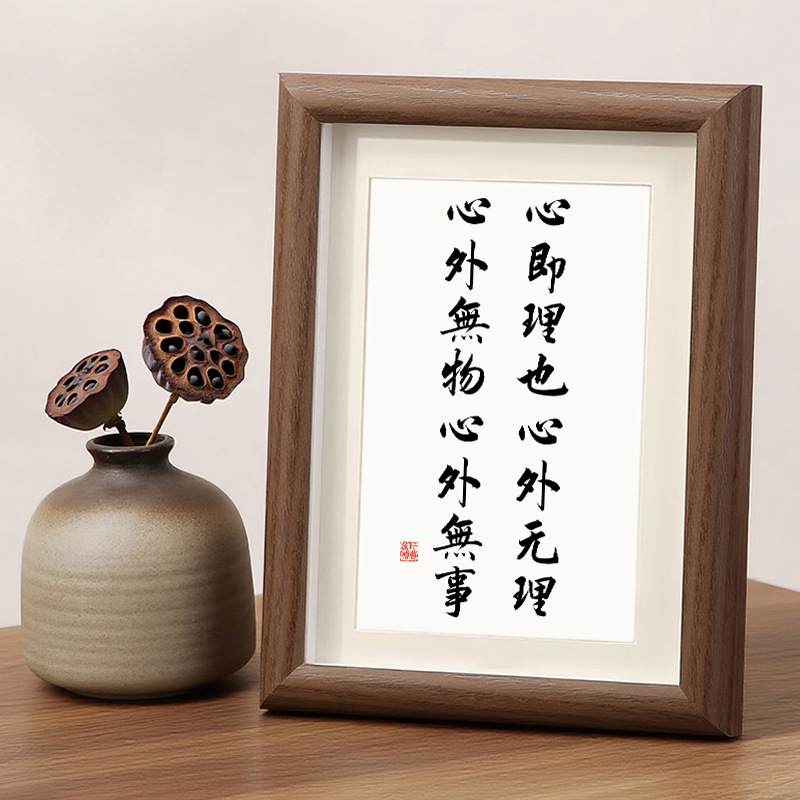 心即理也心外无理
心外無物心外無事